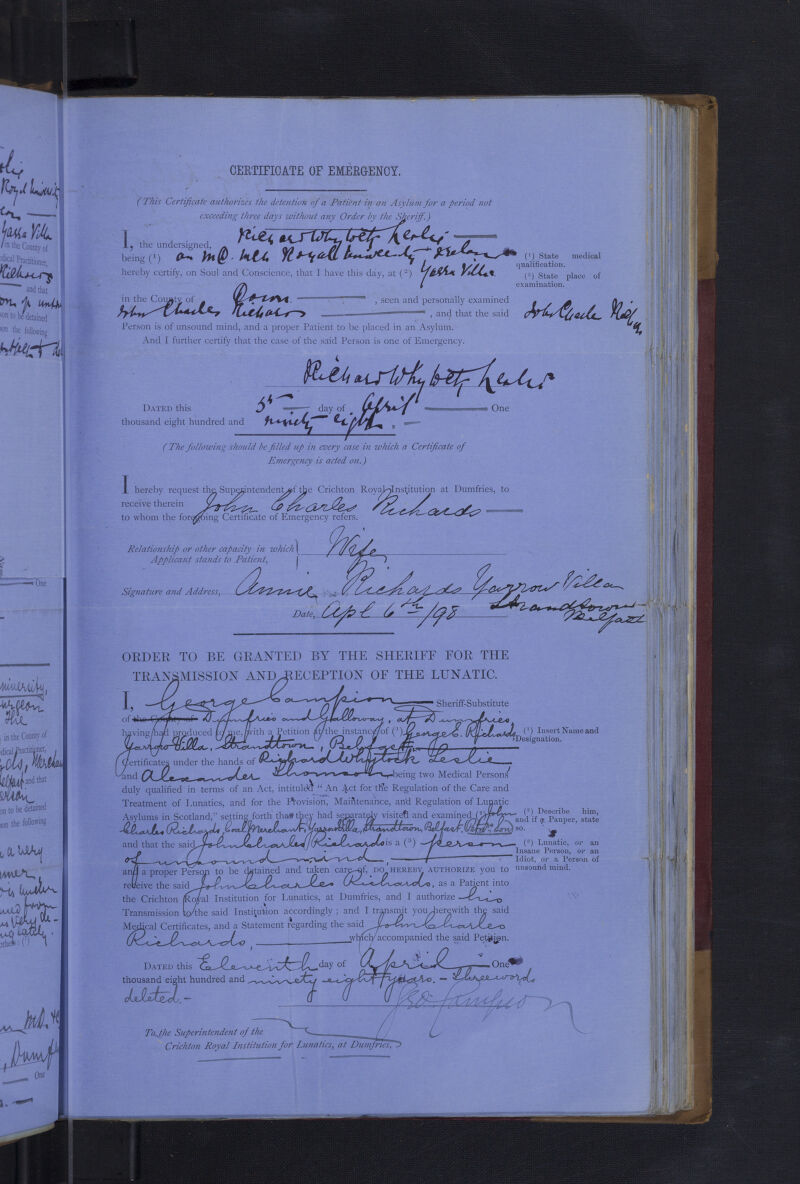 CERTIFICATE OF EMERGENCY.
(This Certificate authorizes the detention of a Patient in an Asylum for a period not
exceeding three days without any Order by the Sheriff.)
I, the undersigned, Richard Whytock Leslie
being (1) an M.D. Royal University Ireland
(1) State medical
qualification.
hereby certify, on Soul and Conscience, that I have this day, at (2) Yarra Villa
(2) State place of
examination.
in the County of Down, seen and personally examined
John Charles Richards, and that the said John Charles Richards
Person is of unsound mind, and a proper Patient to be placed in an Asylum.
And I further certify that the case of the said Person is one of Emergency.
Richard Whytock Leslie
DATED this 5th day of April One
thousand eight hundred and ninety eight.
(The following should be filled up in every case in which a Certificate of
Emergency is acted on.)
I hereby request the Superintendent of the Crichton Royal Institution at Dumfries, to
receive therein John Charles Richards
to whom the foregoing Certificate of Emergency refers.
Relationship or other capacity in which
Applicant stands to Patient, Wife
Signature and Address, Annie Richards Yarrow Villa
Strandtown
Belfast
Date, Apl 6th /98
ORDER TO BE GRANTED BY THE SHERIFF FOR THE
TRANSMISSION AND RECEPTION OF THE LUNATIC.
I, George Campion Sheriff-Substitute
of the County of Dumfries and Galloway, at Dumfries,
having had produced to me, with a Petition at the instance of (1) George C. Richards,
(1) Insert Name and
Designation.
Yarrow Villa, Strandtown, Belfast
Certificates under the hands of Richard Whytock Leslie
and Alexander Thomson being two Medical Persons
duly qualified in terms of an Act, intituled "An Act for the Regulation of the Care and
Treatment of Lunatics, and for the Provision, Maintenance, and Regulation of Lunatic
Asylums in Scotland," setting forth that they had separately visited and examined (2) John
(2) Describe him,
and if a Pauper, state
so.
Charles Richards, Coal Merchant, Yarra Villa, Strandtown, Belfast,
and that the said John Charles Richards is a (3) person
(3) Lunatic, or an
Insane Person, or an
Idiot, or a Person of
unsound mind.
of unsound mind,
and a proper Person to be detained and taken care of, DO HEREBY AUTHORIZE you to
receive the said John Charles Richards, as a Patient into
the Crichton Royal Institution for Lunatics, at Dumfries, and I authorize his
Transmission to the said Institution accordingly; and I transmit you herewith the said
Medical Certificates, and a Statement regarding the said John Charles
Richards, which accompanied the said Petition.
DATED this Eleventh day of April One
thousand eight hundred and ninety eight years. - Three words
deleted. -
Geo. Campion
To the Superintendent of the
Crichton Royal Institution for Lunatics, at Dumfries.